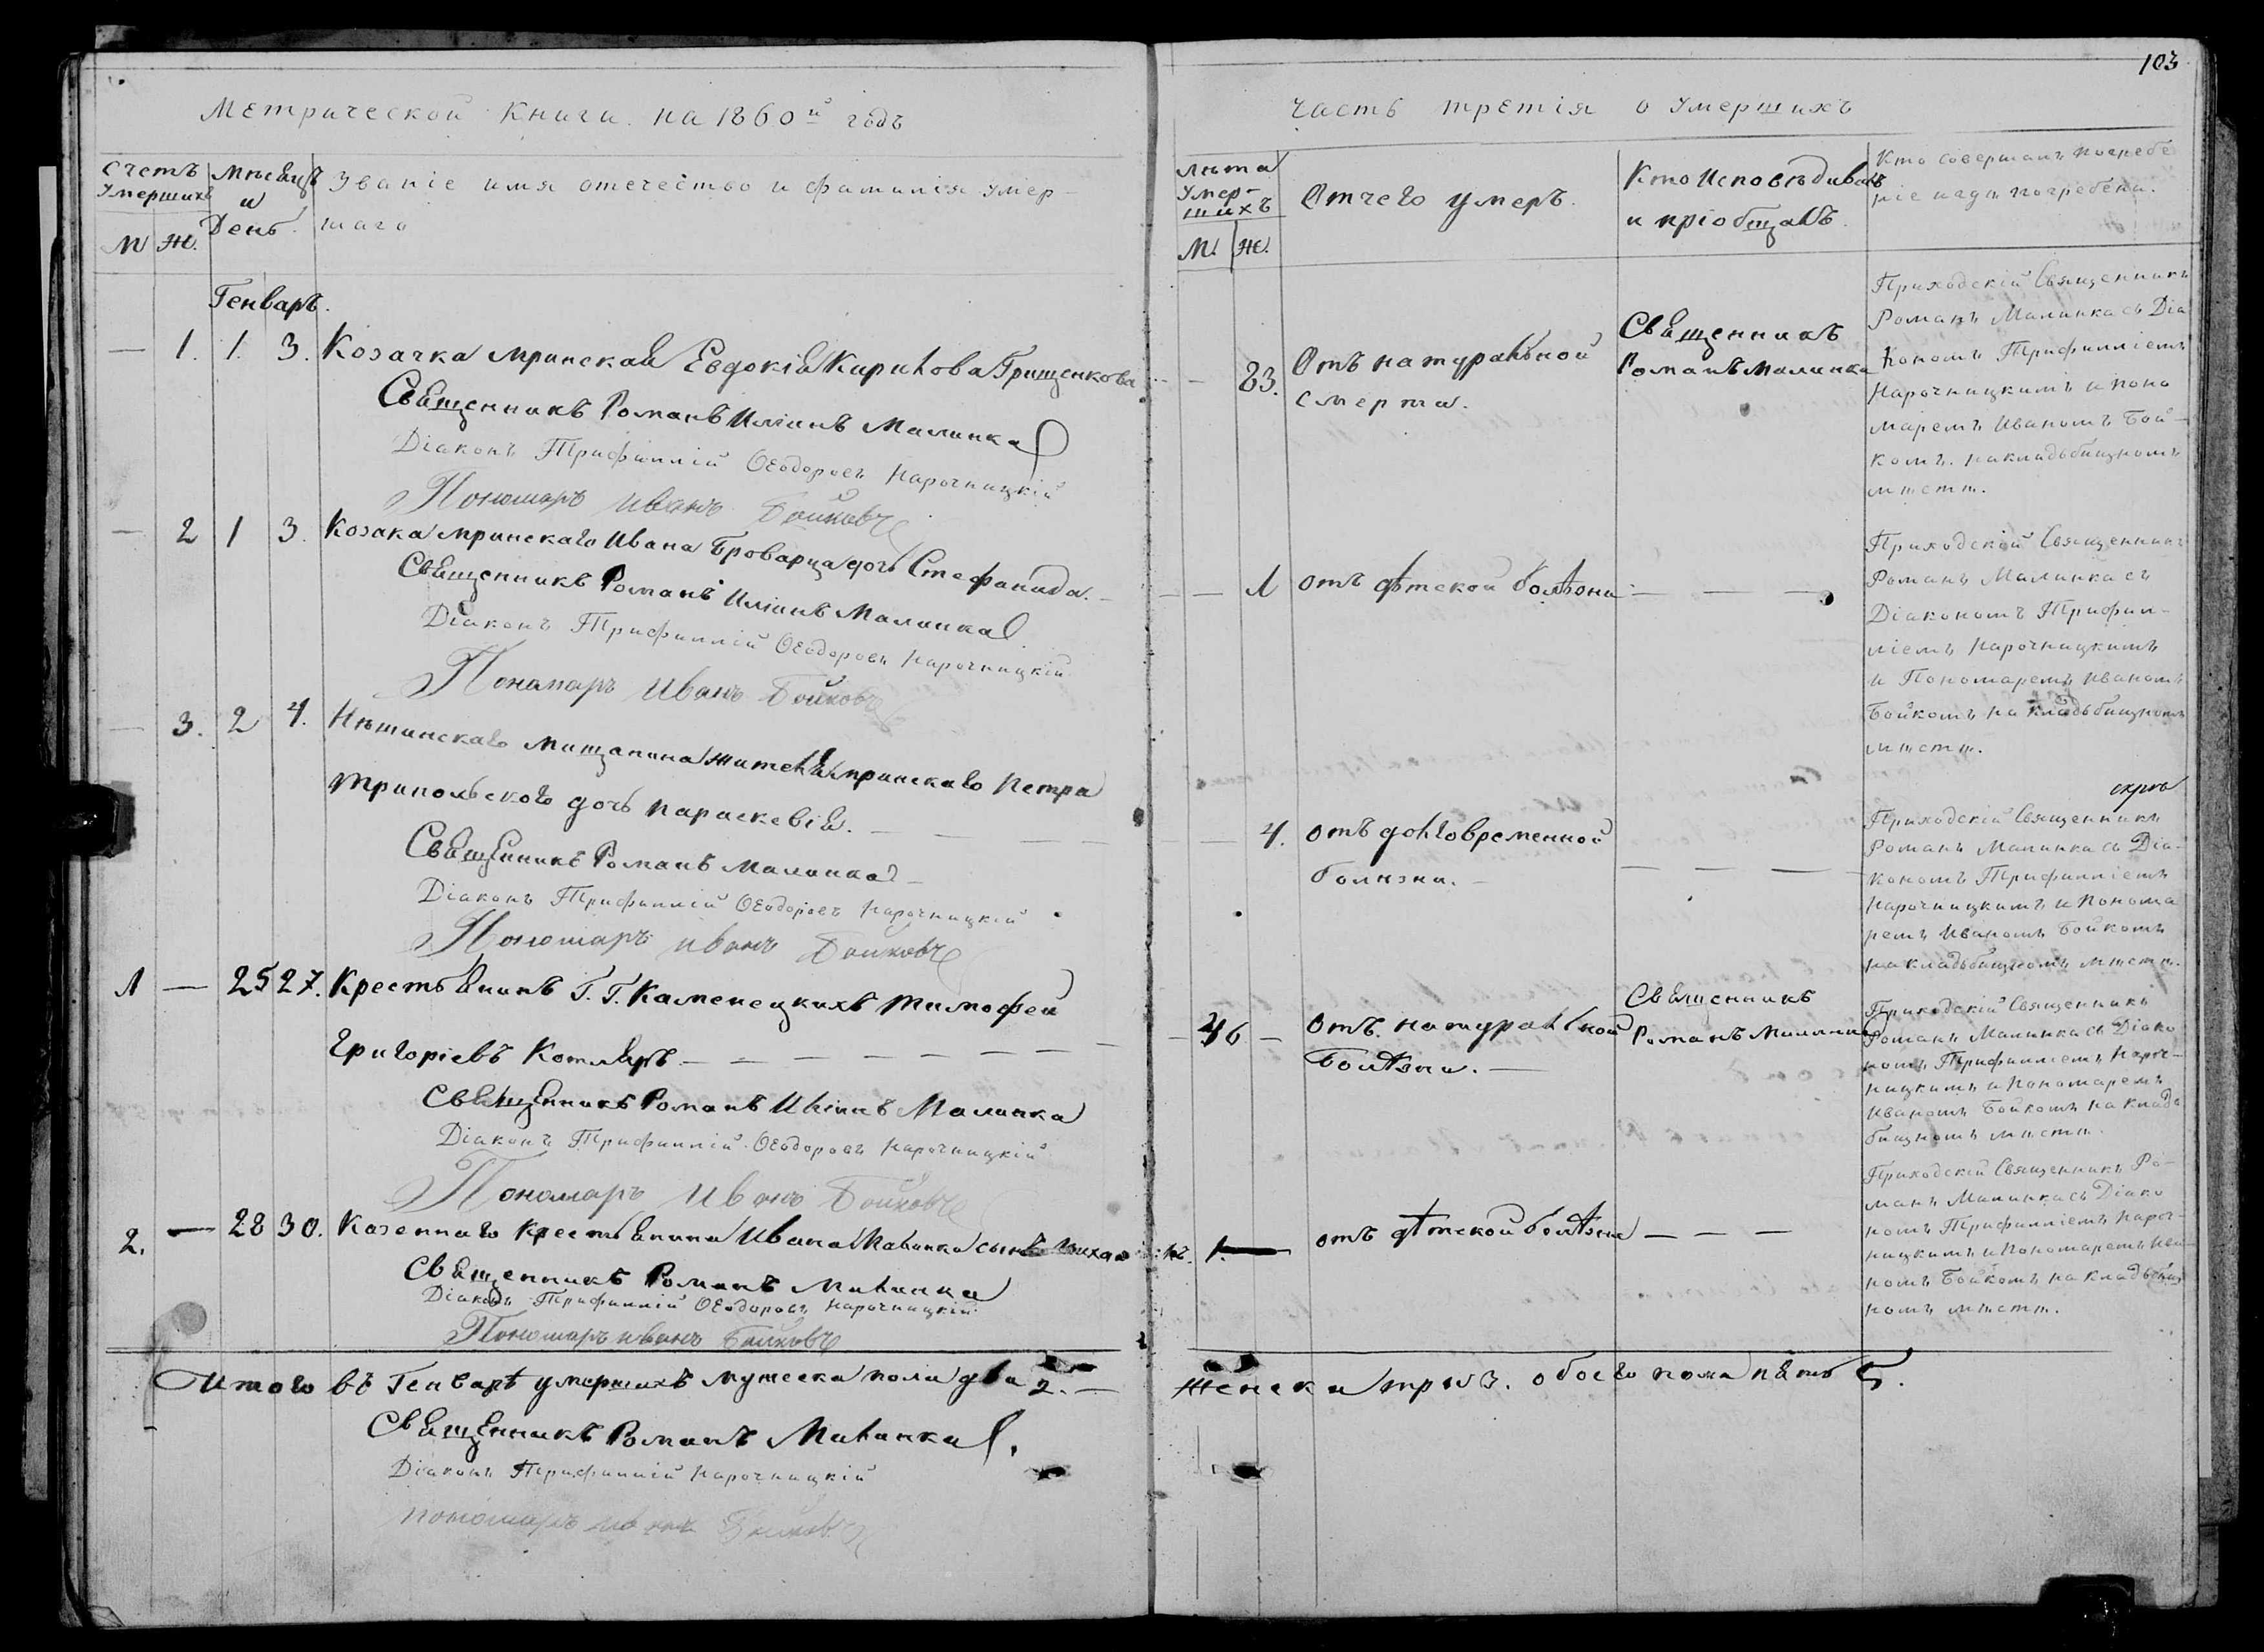 Метрической Книги на 1860й годъ
Счетъ Умершихъ
М Ж.
Мѣсяцъ и День.
Званіе имя отечество и фамилія умер-
шаго
Генваръ.
— 1. 1. 3. Козачка мринская Евдокія Кирилова Грищенкова
Священникъ Романъ Иліинъ Малинка
Діаконъ Трифиллій Ѳеодоровъ Нарочницкій
Пономаръ Иванъ Бойковъ
— 2 1 3. Козака мринскаго Ивана Броварца дочь Стефанида.
Священникъ Романъ Иліинъ Малинка
Діаконъ Трифиллій Ѳеодоровъ Нарочницкій
Пономаръ Иванъ Бойковъ
— 3. 2 4. Нѣжинскаго мищанина жителя мринскаго Петра
Трипольского дочь Параскевія. —
Священникъ Романъ Малинка
Діаконъ Трифиллій Ѳеодоровъ Нарочницкій
Пономаръ Иванъ Бойковъ
1 — 25 27. Крестьянинъ Г. Г. Каменецкихъ Тимофей
Григоріевъ Котляръ — — —
Священникъ Романъ Иліинъ Малинка
Діаконъ Трифиллій Ѳеодоровъ Нарочницкій
Пономаръ Иванъ Бойковъ
2. — 28 30. Казенного крестьянина Ивана сынъ
Священникъ Романъ Малинка
Діаконъ Трифиллій Ѳеодоровъ Нарочницкій
Пономаръ Иванъ Бойковъ
Итого въ Генварѣ умершихъ мужеска пола два 2. —
Священникъ Романъ Малинка.
Діаконъ Трифиллій Нарочницкій
Пономаръ Иванъ Бойковъ
103
Часть третія о умершихъ
Лѣта Умер-
шихъ
М. Ж.
Отчего умеръ.
Кто Исповѣдивалъ
и пріобщалъ
Кто совершалъ погребе
ніе и гдѣ погребены.
— 83. Отъ натуральной
смерти.
Священникъ
Романъ Малинка
Приходскій Священникъ
Романъ Малинка съ Діа
кономъ Трифилліемъ
Нарочницкимъ и поно
маремъ Иваномъ Бой-
комъ. на кладьбищномъ
мѣстѣ.
— 1 отъ дѣтской болѣзни — — —
Приходскій Священникъ
Романъ Малинка съ
Діакономъ Трифил-
ліемъ Нарочницкимъ
и Пономаремъ Иваномъ
Бойкомъ на кладьбищномъ
мѣстѣ.
— 4. отъ долговременной
болѣзни. —
— — —
Приходскій Священникъ
Романъ Малинка съ Діа-
кономъ Трифилліемъ
Нарочницкимъ и Понома
ремъ Иваномъ Бойкомъ
на кладьбищномъ мѣстѣ.
46 — Отъ натуральной
Болѣзни. —
Священникъ
Романъ Малинка
Приходскій Священникъ
Романъ Малинка съ Діако
номъ Трифилліемъ Нароч-
ницкимъ и Пономаремъ
Иваномъ Бойкомъ на кладь
бищномъ мѣстѣ.
1. — отъ дѣтской болѣзни — — —
Приходскій Священникъ Ро-
манъ Малинка съ Діако
номъ Трифилліемъ Нароч-
ницкимъ и Пономаремъ Ива
номъ Бойкомъ на кладьбищ
номъ мѣстѣ.
Женска три 3. обоего пола пять 5.